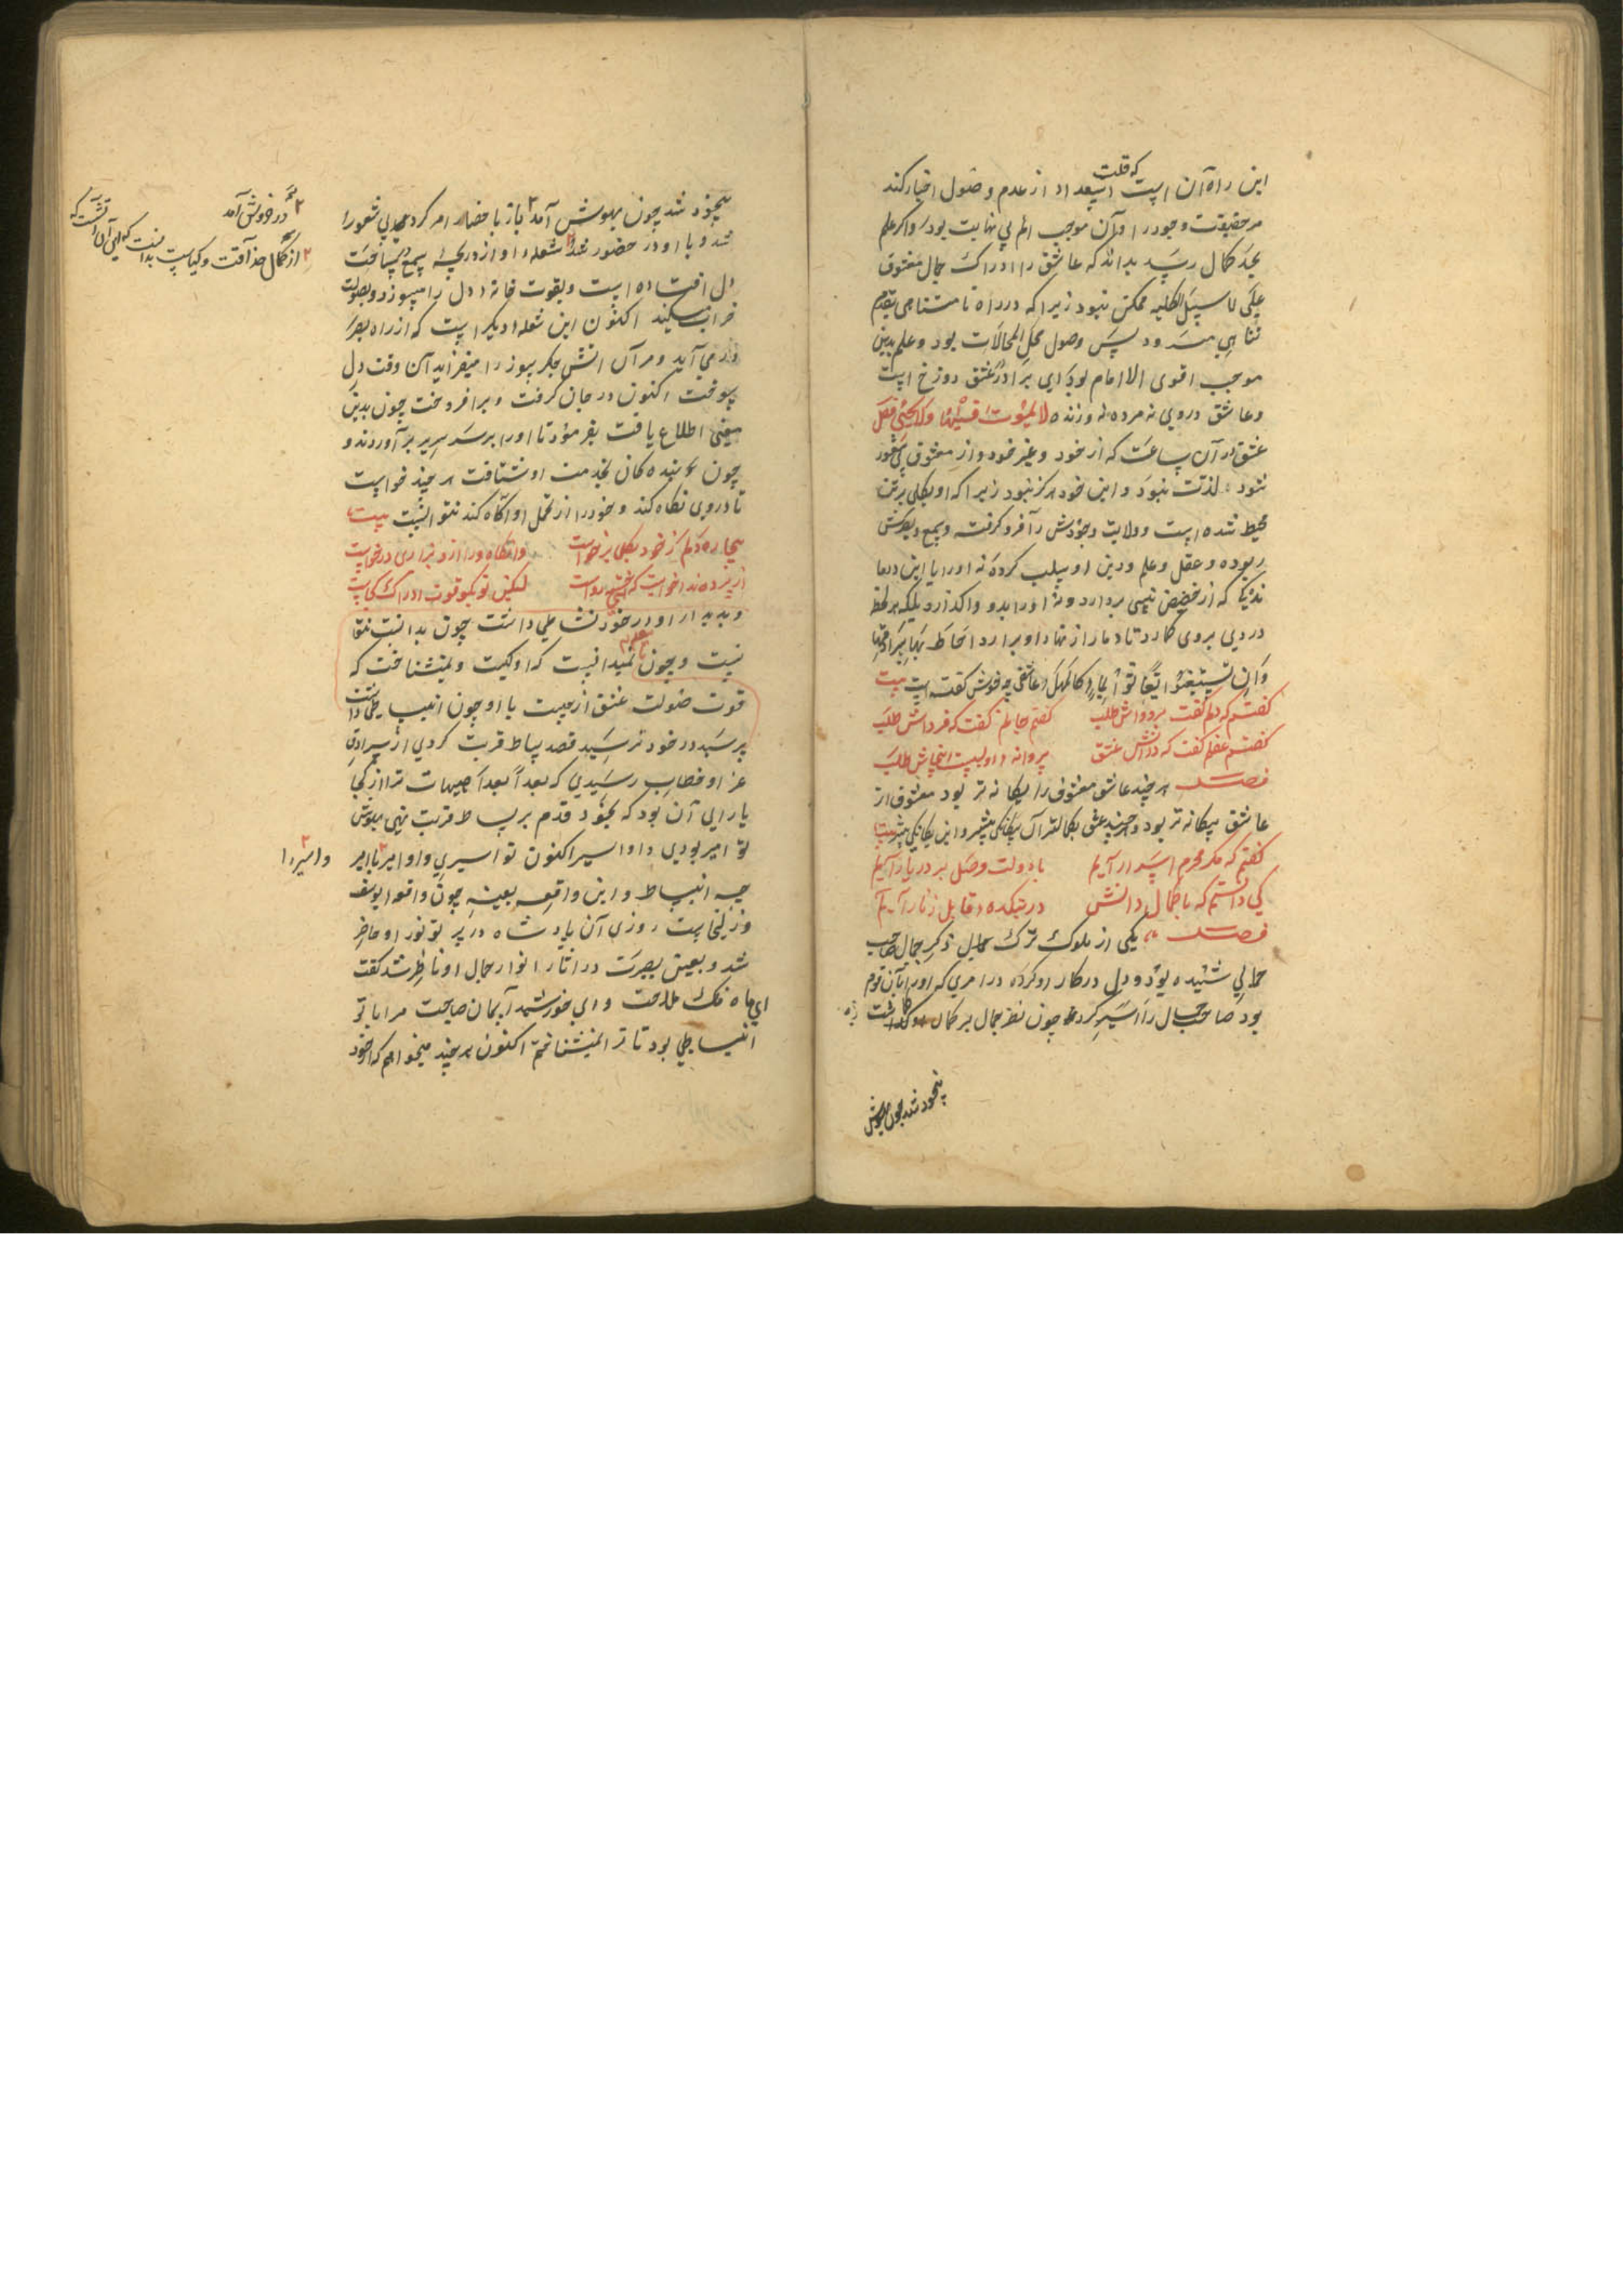 این راه آن است که قلت استعداد از عدم وصول اختیار کند
مر حقیقت وجود را و آن موجب الم بی نهایت بود و اگر علم
بحد کمال رسد بداند که عاشق را ادراک جمال معشوق
علی سبیل الکلیه ممکن نبود زیرا که در راه نامتناهی بقدم
تناهی میرود پس وصول محل المحالات بود و علم بدین
موجب اقوی الالام بود ای برادر عشق دوزخ است
و عاشق در وی نه مرده نه زنده لا یموت فیها ولا یحیی فصل
عشق در آن ساعت که از خود و غیر خود و از معشوق بی شعور
شود لذت نبود و این خود هرگز نبود زیرا که او بکلی برتن
محیط شده است و ولایت وجودش را فرو گرفته و سمع و بصرش
ربوده و عقل و علم و دین او سلب کرده نه او را با این
که از حضیض نیستی بردارد و نه او را بدو واگذارد بلکه هر لحظه
دردی بروی گمارد تا دمار از نهاد او برآرد احاط بهم سرادقها
وان یستغیثوا یغاثوا بماء کالمهل و عاشقی چه خوش گفته است بیت
گفتم که دلم گفت بر دواش طلب گفتم جانم گفت که فرداش طلب
گفتم عقلم گفت که در آتش عشق پروانه او نیست اینجاش طلب
فصل هر چند عاشق معشوق را بیگانه تر بود معشوق از
عاشق بیگانه تر بود و هر چند عشق بکمالتر آن بیگانگی بیشتر و این یگانگی بیشتر بیت
گفتم که مگر محرم اسرار آیم با دولت وصل بر در یار آیم
کی دانستم که با کمال دانش در بتکده قابل زنار آیم
فصل یکی از ملوک ترک ذکر جمال صاحب
جمالی شنیده بود و دل در کار او کرده در امری که او را با آن قوم
بود صاحب جمال را اسیر کردند چون نظر جمال بر کمال او گماشت
بیخود شد چون بیهوش
بیخود شد چون بیهوش آمد باز باحضار امر کرد بی شعور را
شد و با او در حضور شد شعله آواز دریچه سمع بساحت
دل افتاده است و بقوت خانه دل را میسوزد و بصولت
خراب میکند اکنون این شعله دیگر است که از راه بصر
در می آید و مر آن آتش جگر سوز را میفزاید آن وقت دل
سوخت اکنون در جان گرفت و برافروخت چون بدین
معنی اطلاع یافت بفرمود تا او را بر سر سریر برآوردند و
چون بندگان بخدمت او شتافت هر چند خواست
تا در وی نگاه کند و خود را از تحمل او آگاه کند نتوانست بیت
بیچاره دلم ز خود بکلی برخاست وانگاه ورا از و بزاری درخواست
از پرده ندا خواست که گشتی رواست لیکن تو بگو قوت ادراک کجاست
و بدیدار او در خود نشاطی داشت چون بدانست بقا
نیست و چون نمیدانست که او کیست و نمیشناخت که
قوت صولت عشق از چیست با او چون انبساطی داشت
پرسید در خود ترسید قصد بساط قربت کردی از سرادق
عز او خطاب رسیدی که بعدا بعدا هیهات ترا از کجا
یارای آن بود که بخود قدم بر بساط قربت نهی
تو امیر بودی و او اسیر اکنون تو اسیری و او امیر با امیر
چه انبساط و این واقعه بعینه چون واقعه یوسف
و زلیخا است روزی آن پادشاه در پرتو نور او حاضر
شد و بعین بصیرت در آثار انوار جمال او ناظر شد گفت
ای ماه فلک ملاحت و ای خورشید آسمان صباحت مرا با تو
انبساطی بود تا ترا نمیشناختم اکنون هر چند میخواهم که از خود
در خروش آمد
از کمال حذاقت و کیاست بدانست که این آن آتش است که
و اسیر را